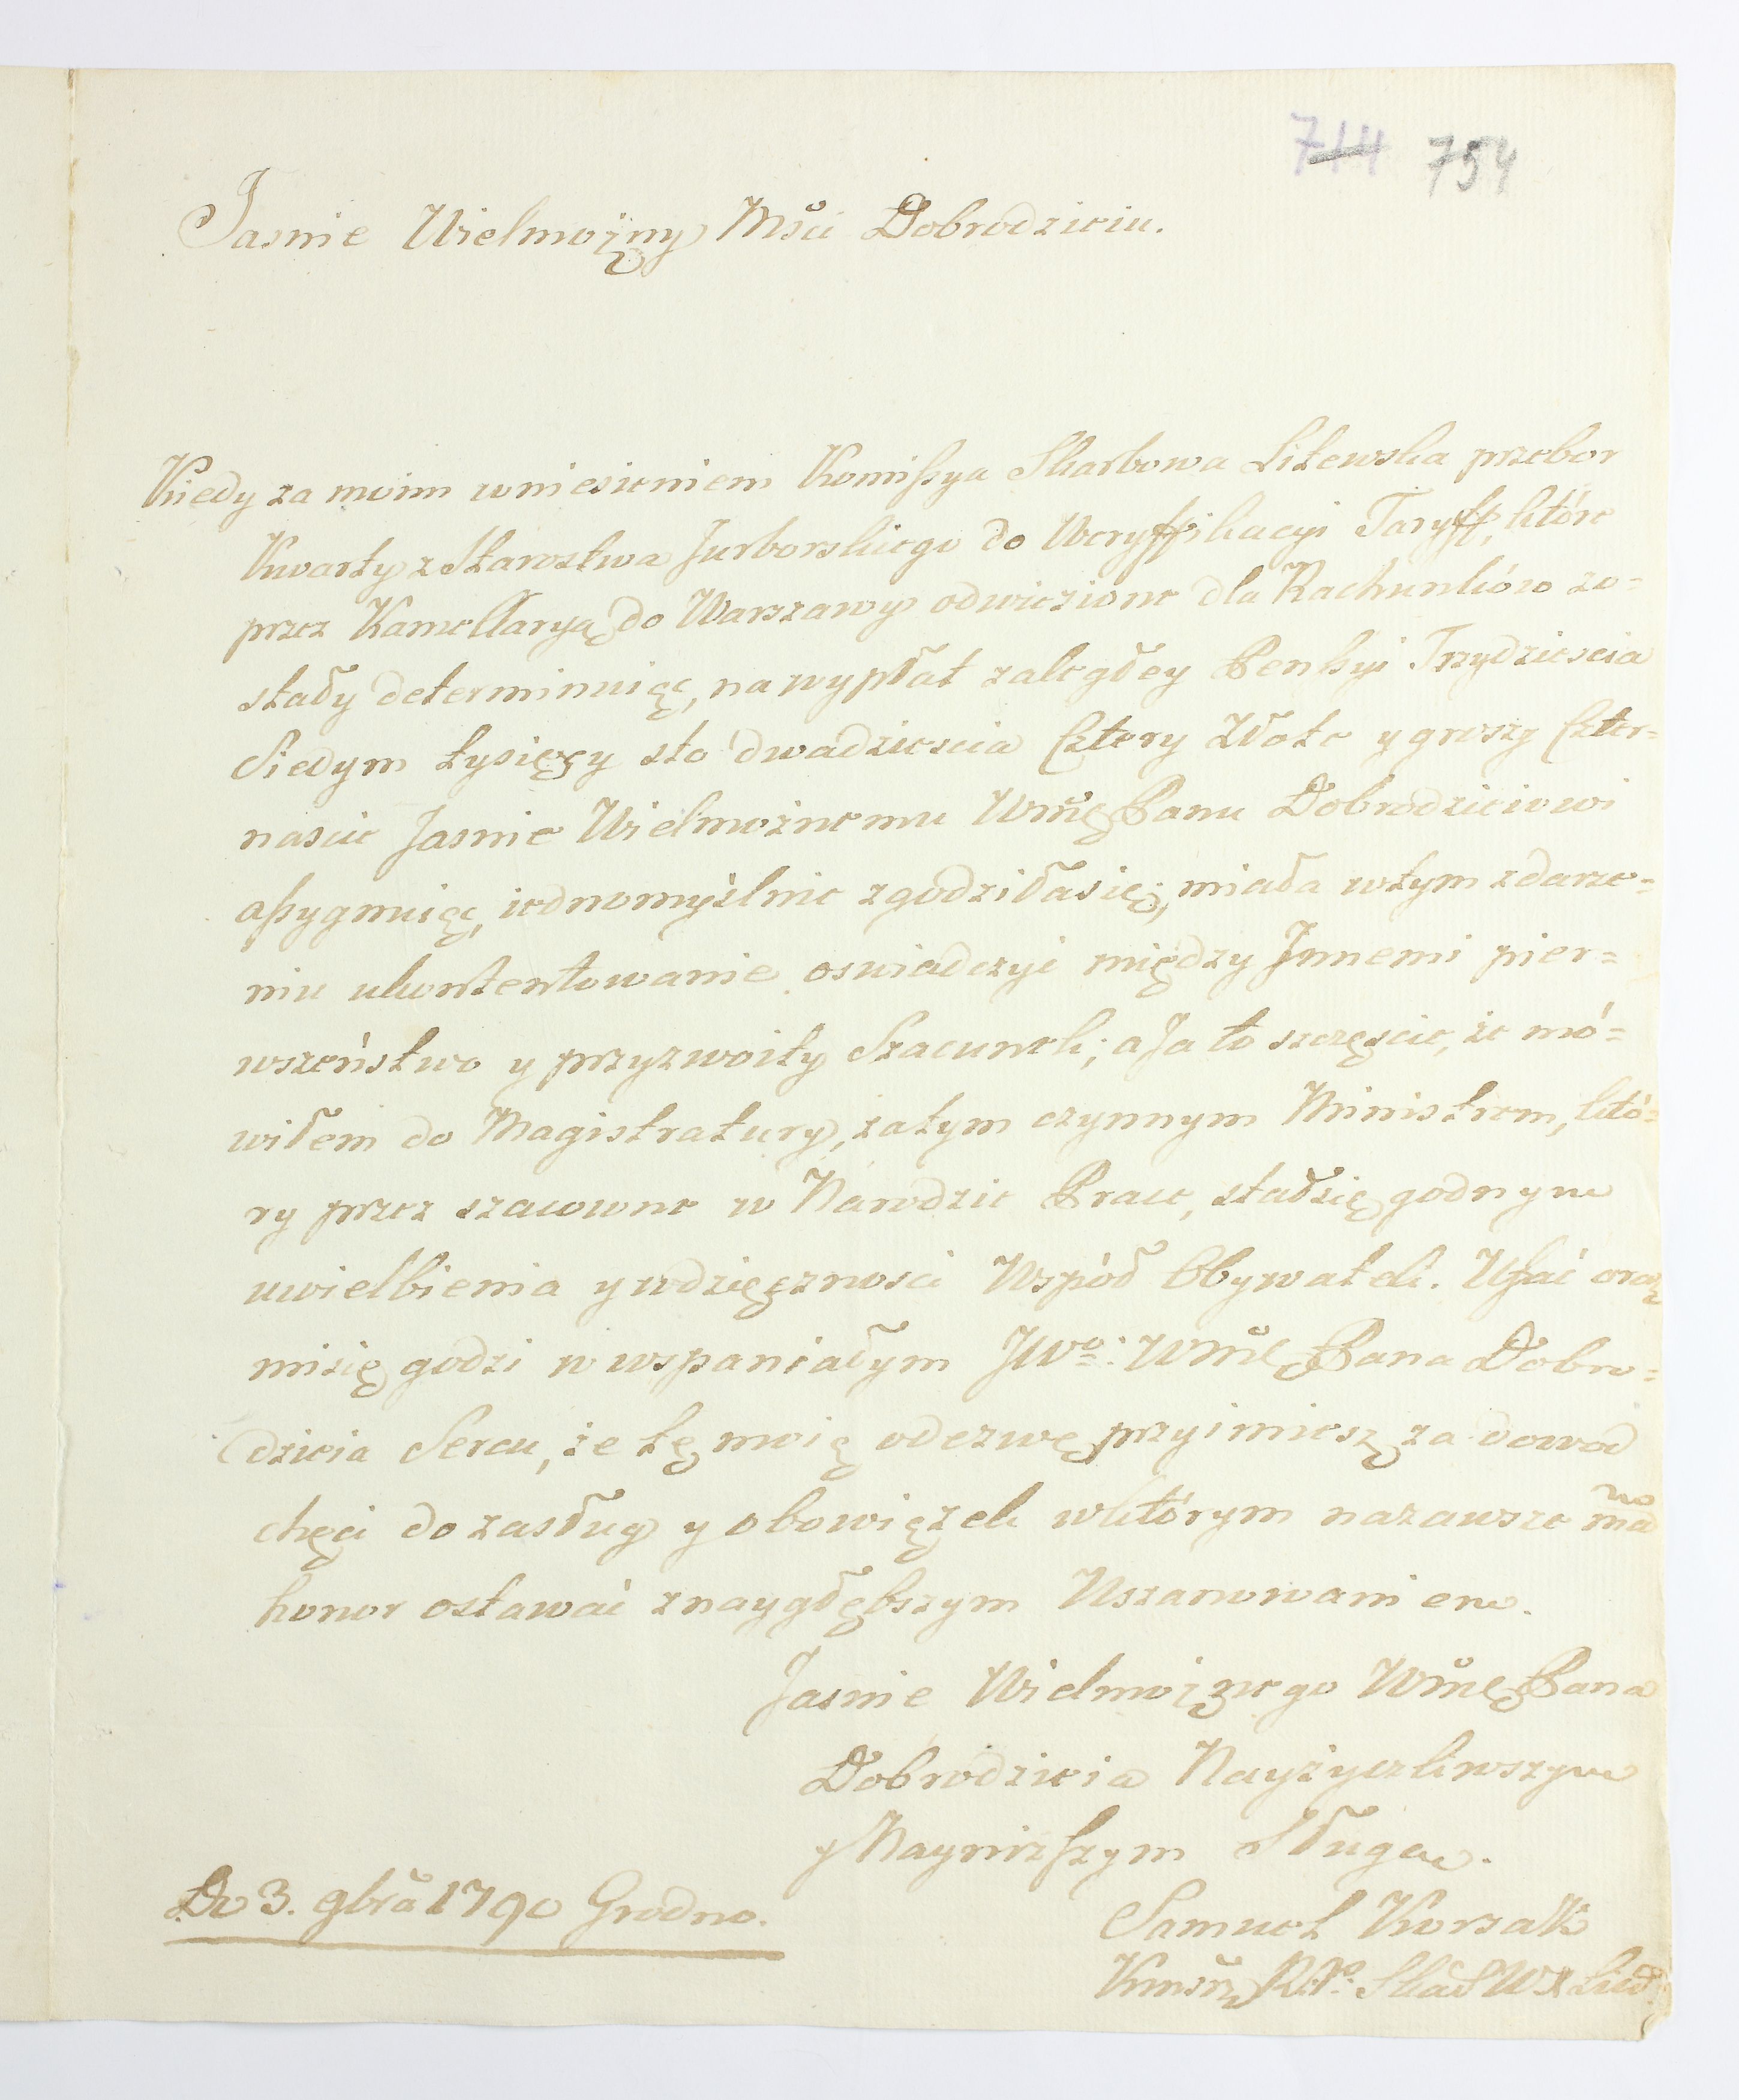 714 754
Jasnie Wielmożny Mści Dobrodzieiu.
Kiedy za moim wniesieniem Komissya Skarbowa Litewska przebor
Kwarty z Starostwa Jurborskiego do Weryffikacyi Taryff, które
przez Kancellaryą do Warszawy odwiezione dla Rachunków zo=
stały determinuiąc, na wypłat zaległey Penssyi Trzydziescia
Siedym tysięcy sto dwadziescia Cztery Złote y groszy Czter=
nascie Jasnie Wielmożnemu WMć Panu Dobrodzieiowi
assygnuiąc, iednomyślnie zgodziła się, miała w tym zdarze=
niu ukontentowanie oswiadczyć między Innemi pier=
wszeństwo y przyzwoity Szacunek; a Ja to szczęscie, że mó=
wiłem do Magistratury, za tym czynnym Ministrem, któ=
ry przez szacowne w Narodzie Prace, stał się godnym
uwielbienia y wdzięcznosci Współ Obywateli. Ufać oraz
mi się godzi w wspaniałym JWo: WMć Pana Dobro=
dzieia Sercu, że tę moię odezwę przyimiesz za dowod
chęci do zasług y obowiązek w którym na zawsze mam
honor ostawać z naygłębszym Uszanowaniem.
Jasnie Wielmożnego WMć Pana
Dobrodzieia Nayżyczliwszym
y Nayniższym Sługą.
Samuel Korsak
D. 3. 9bra 1790 Grodno.